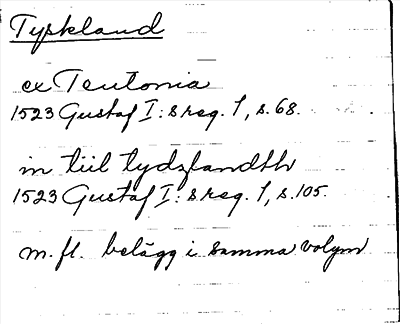 Tyskland
ex Teutonia
1523 Gustaf I:s reg. 1, s. 68.
in tiil tydzslandth
1523 Gustaf I:s reg. 1, s. 105.
m. fl. belägg i samma volym